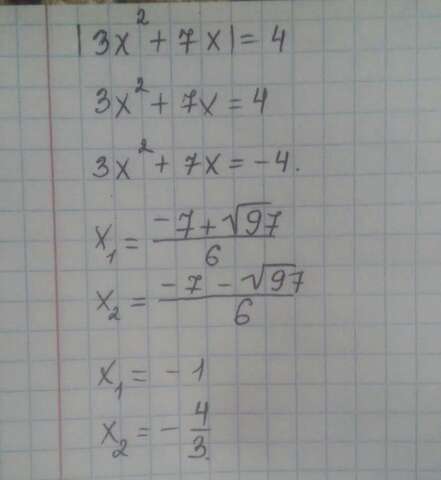 |3x² + 7x| = 4
3x² + 7x = 4
3x² + 7x = -4.
x₁ = (-7 + √97)/6
x₂ = (-7 - √97)/6
x₁ = -1
x₂ = -4/3.